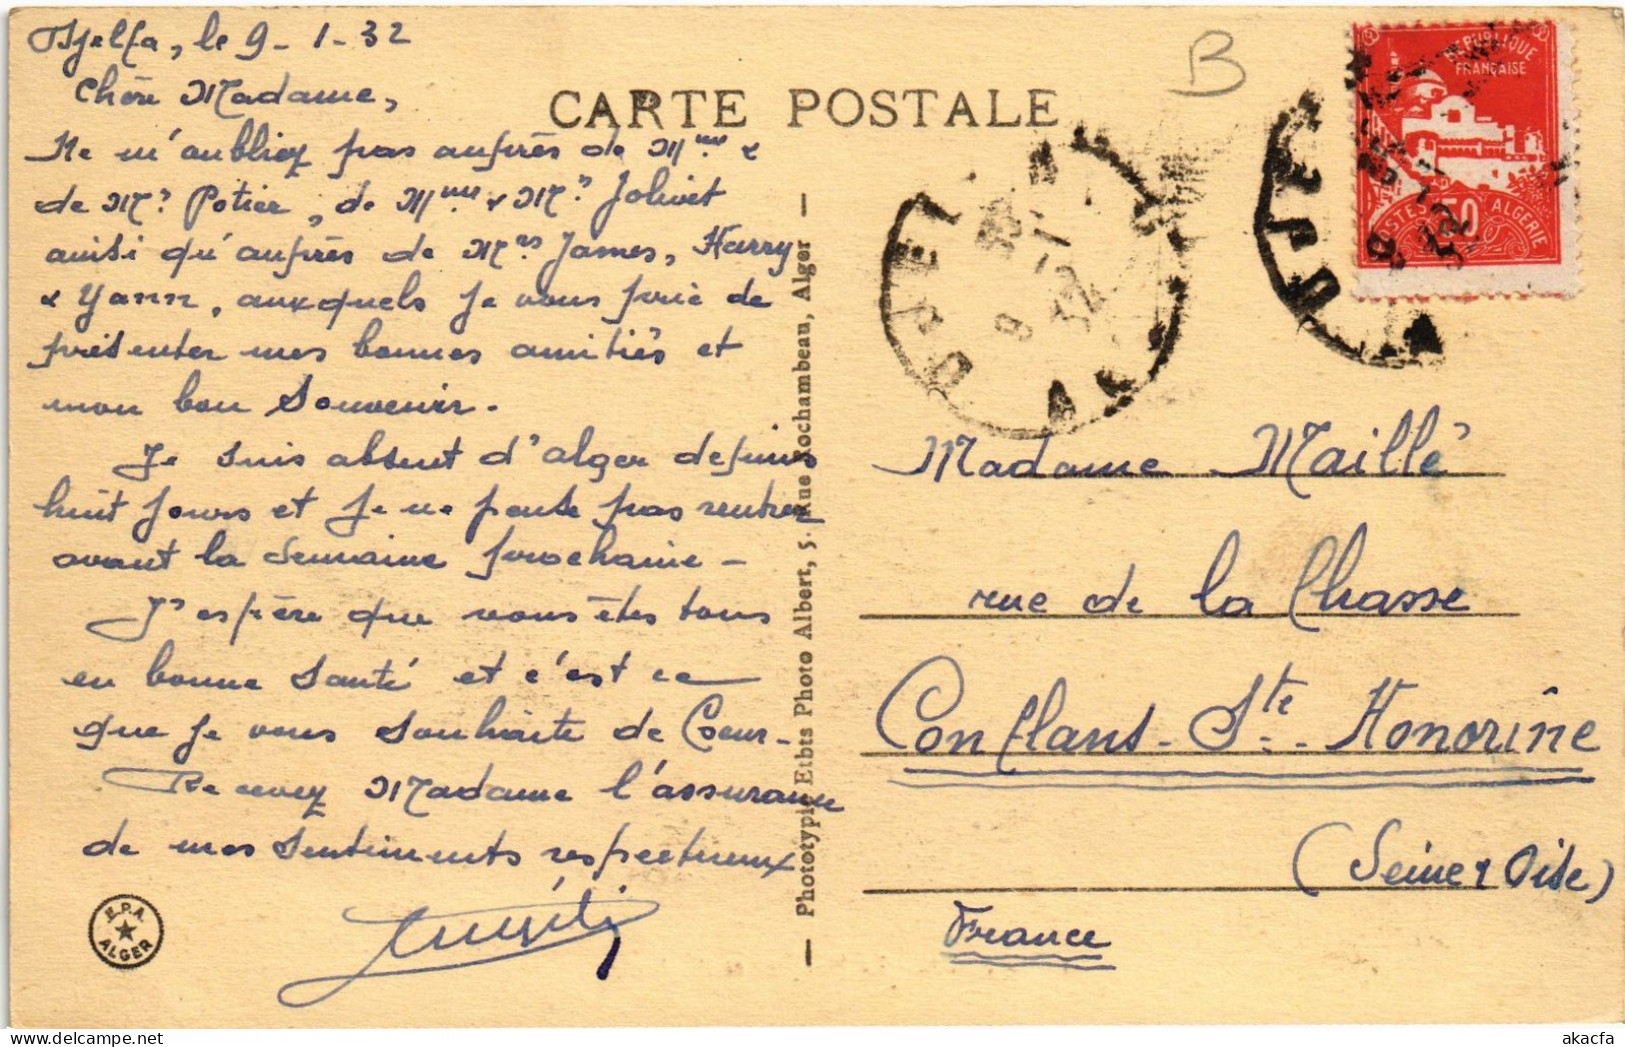 Djelfa, le 9-1-32
Chère Madame,
Ne m'oubliez pas auprès de Mme &
de Mr. Potier, de Mme & Mr. Jolivet
ainsi qu'auprès de Mrs James, Harry
& Yann, auxquels je vous prie de
présenter mes bonnes amitiés et
mon bon souvenir.
Je suis absent d'alger depuis
huit jours et je ne pense pas rentrer
avant la semaine prochaine -
J'espère que vous êtes tous
en bonne santé et c'est ce
que je vous souhaite de Coeur-
Recevez Madame l'assurance
de mes sentiments respectueux
E.P.A.
ALGER
CARTE POSTALE
B
— Phototypie Etbts Photo Albert, 5. Rue Rochambeau, Alger —
REPUBLIQUE
FRANÇAISE
POSTES 50 ALGERIE
DJELFA
9 -1
32
Madame Maillé
rue de la Chasse
Conflans-Ste-Honorine
(Seine & Oise)
France
akacfa